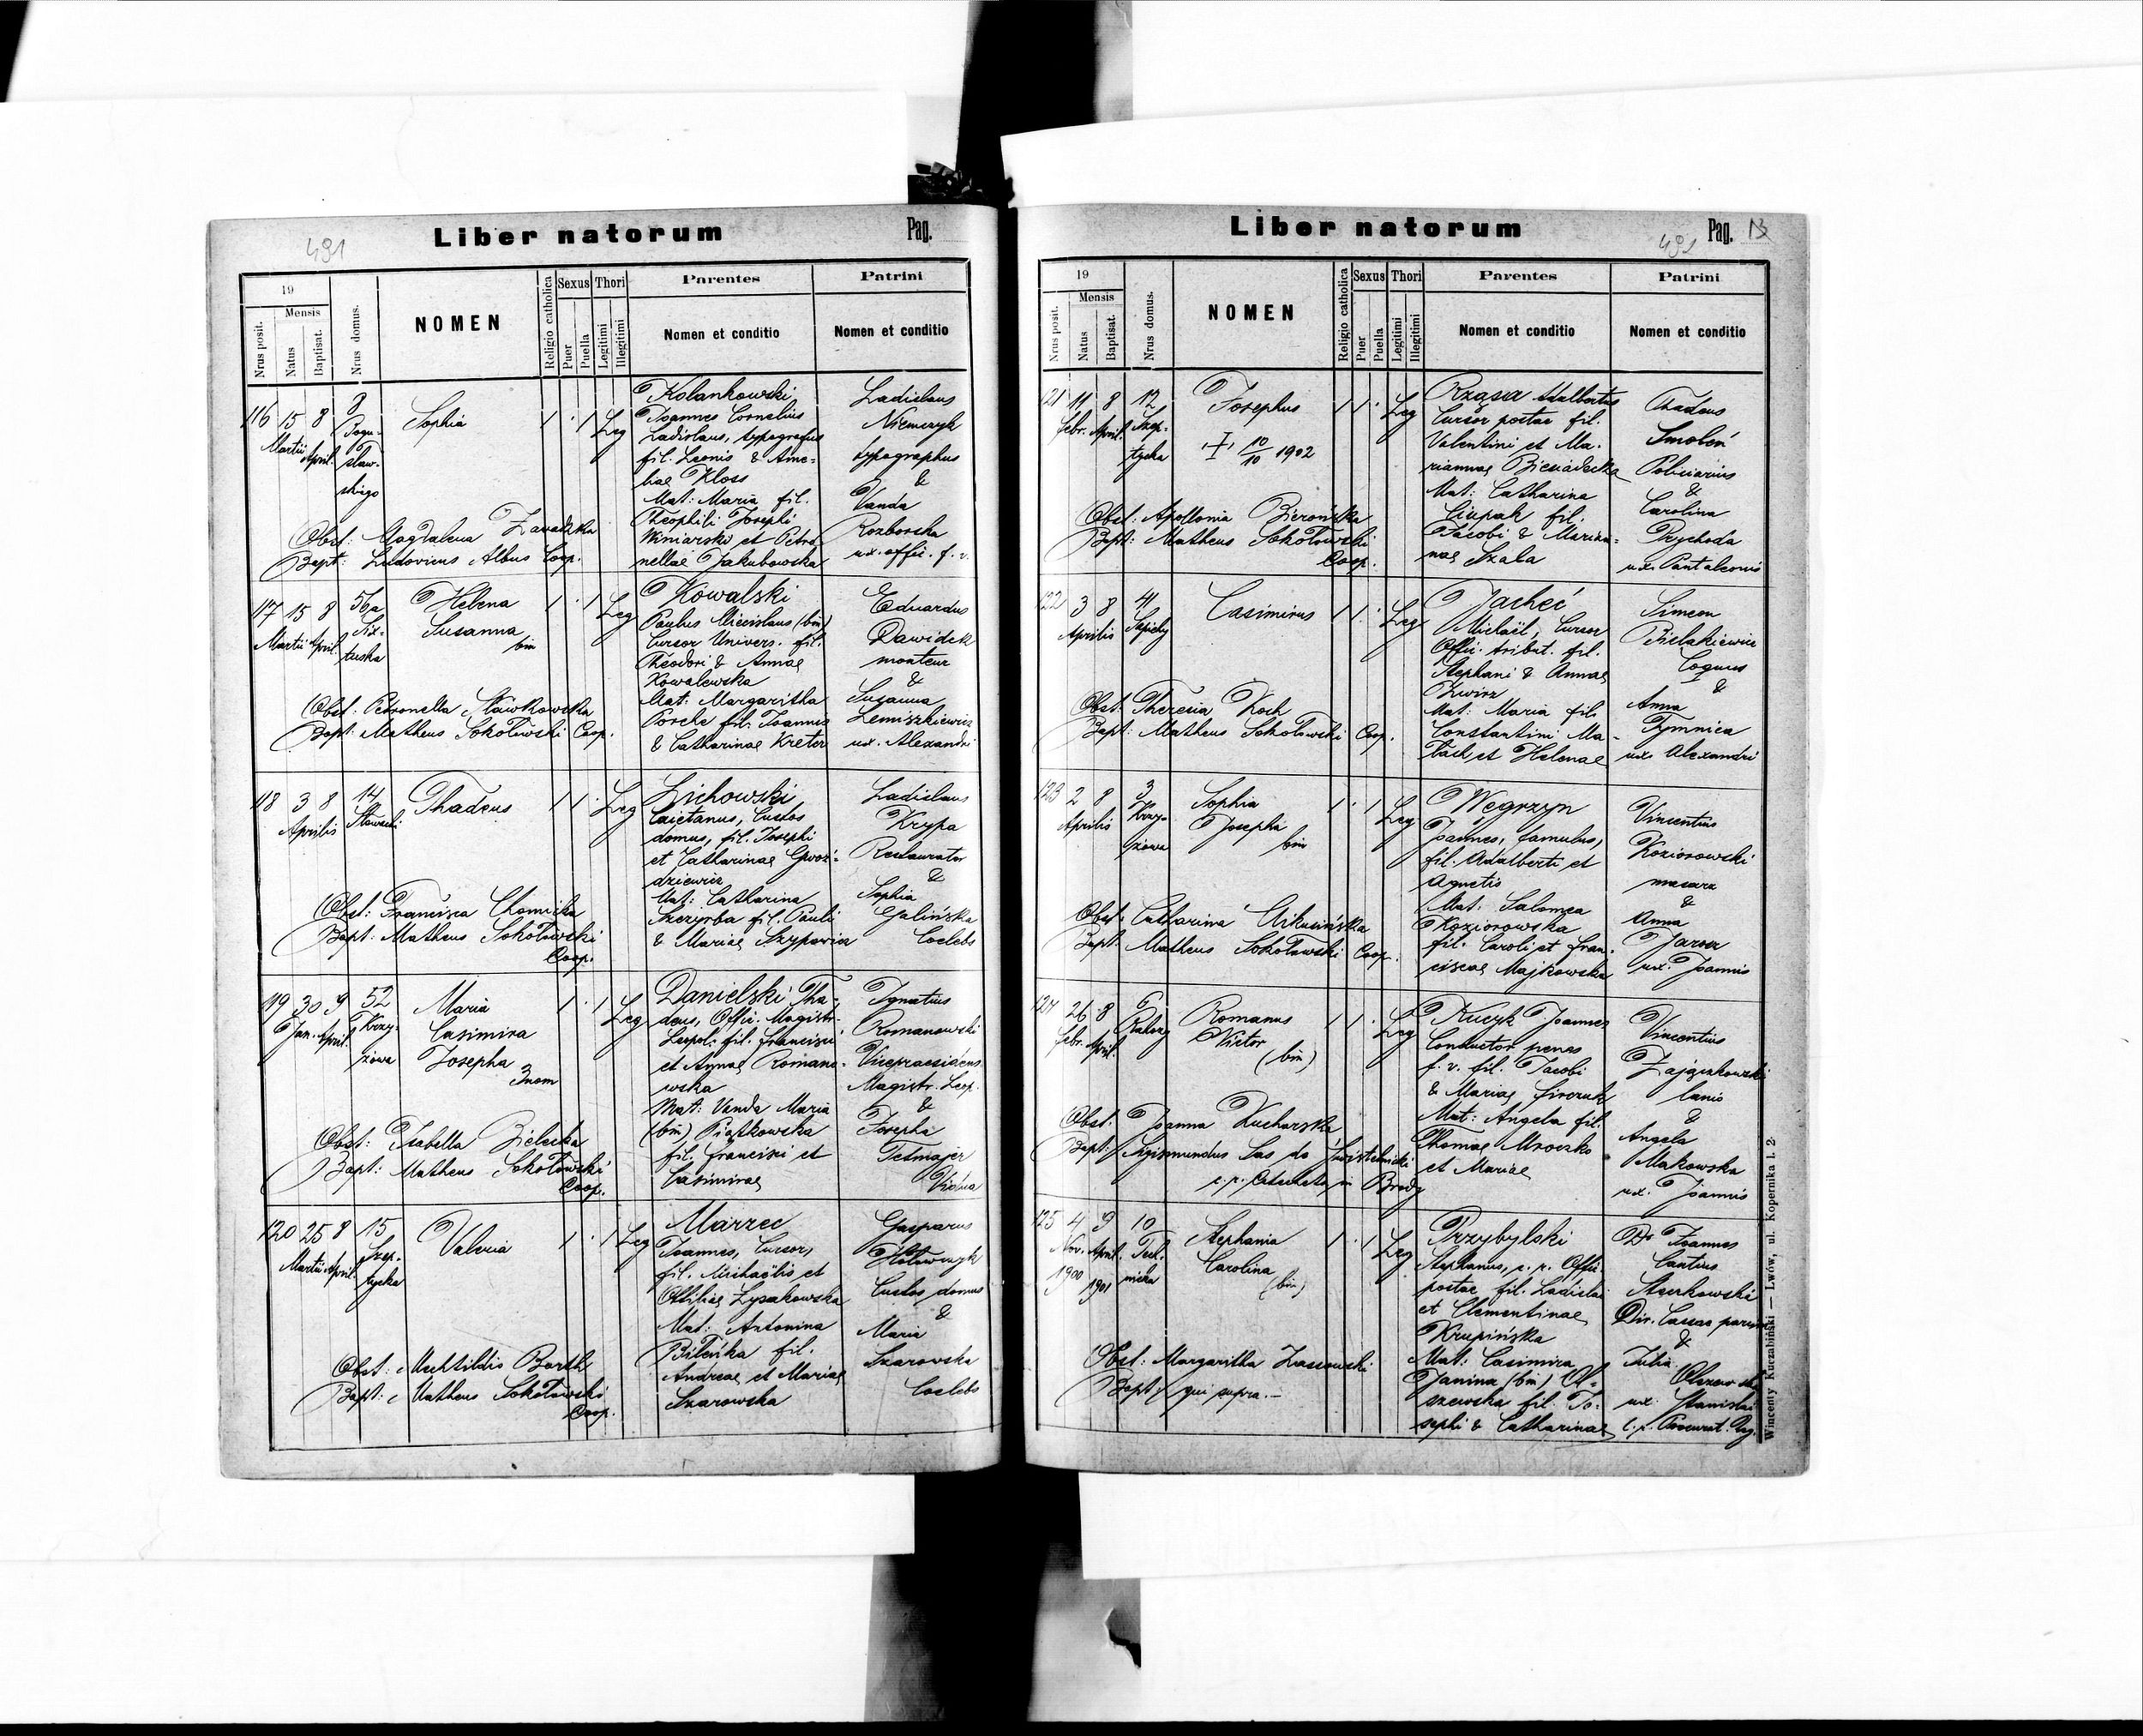 Liber natorum
Pag.
491
19
Mensis
Nrus posit.
Natus
Baptisat.
Nrus domus.
NOMEN
Religio catholica
Sexus
Puer
Puella
Thori
Legitimi
Illegitimi
Parentes
Nomen et conditio
Patrini
Nomen et conditio
116 15 8 8
Martii April.
Sophia
1 · 1 Leg
Kolankowski
Joannes Cornelius
Ladislaus, typografus
fil. Leonis & Ame-
liae Kloss
Mat: Maria fil.
Theophili Josephi
Winiarski et Petro
nellae Jakubowska
Ladislaus
Niemczyk
typographus
&
Vanda
Rozborska
ux. offic. f. v.
Obst: Magdalena Zawadzka
Bapt: Ludovicus Albus Coop.
117 15 8 56a
Martii April. Six-
tuska
Helena
Susanna
bin
1 · 1 Leg
Kowalski
Paulus Miecislaus (bin)
Cursor Univers. fil.
Theodori & Annae
Kowalewska
Mat: Margaritha
Porche fil. Joannis
& Catharinae Kretor
Eduardus
Dawidek
monteur
&
Susanna
Lemiszkiewicz
ux. Alexandri
Obst: Petronella Sławkowska
Bapt: Matheus Sokołowski Coop.
118 3 8 14
Aprilis
Thadeus
1 1 · Leg
Lichowski
Caietanus, Custos
domus, fil. Josephi
et Catharinae Gwoź-
dziewicz
Mat: Catharina
Szczyrba fil. Pauli
& Mariae Szyparia
Ladislaus
Krypa
Restaurator
&
Sophia
Galińska
Coelebs
Obst: Francisca Chomicka
Bapt: Matheus Sokołowski
Coop.
119 30 9 52
Jan. April. Krzy-
żowa
Maria
Casimira
Josepha
3nom
1 · 1 Leg
Danielski Tha-
deus, Offic. Magistr.
Leopol. fil. Francisci
et Annae Romano-
wska
Mat: Vanda Maria
(bin) Piątkowska
fil. Francisci et
Casimirae
Ignatius
Romanowski
Vicepraesidens
Magistr. Leop.
&
Josepha
Tetmajer
Vidua
Obst: Isabella Bielecka
Bapt: Matheus Sokołowski
Coop.
120 25 8 15
Martii April. Szep-
tycka
Valeria
1 · 1 Leg
Marzec
Joannes, Cursor,
fil. Michaëlis et
Ottiliae Łysakowska
Mat: Antonina
Bileńka fil.
Andreae et Mariae
Szarowska
Gasparus
Hołowczyk
Custos domus
&
Maria
Szarowska
Coelebs
Obst: Mechtildis Barth
Bapt: Matheus Sokołowski
Coop.
Liber natorum
Pag. 13
491
19
Mensis
Nrus posit.
Natus
Baptisat.
Nrus domus.
NOMEN
Religio catholica
Sexus
Puer
Puella
Thori
Legitimi
Illegitimi
Parentes
Nomen et conditio
Patrini
Nomen et conditio
121 11 8 12
Febr. April. Szep-
tycka
Josephus
1 1 · Leg
10/10 1902
Rząsa Adalbertus
Cursor postae fil.
Valentini et Ma-
riannae Bieniadecka
Mat: Catharina
Ciupak fil.
Jacobi & Marian-
nae Szala
Thadeus
Smoboń
Policiarius
&
Carolina
Prychoda
ux. Pantaleonis
Obst: Apollonia Bierońska
Bapt: Matheus Sokołowski
Coop.
122 3 8 41
Aprilis Sapiehy
Casimirus
1 1 · Leg
Jacheć
Michaël, Cursor
Offic. tribut. fil.
Stephani & Annae
Zwirz
Mat: Maria fil.
Constantini Ma-
bach et Helenae
Simeon
Bielakiewicz
Coquus
&
Anna
Tymnica
ux. Alexandri
Obst: Theresia Koch
Bapt: Matheus Sokołowski Coop.
123 2 8 3
Aprilis Krzy-
żowa
Sophia
Josepha
bin
1 · 1 Leg
Węgrzyn
Joannes, famulus,
fil. Adalberti et
Agnetis
Mat. Salomea
Koziorowska
fil. Caroli et Fran-
ciscae Majkowska
Vincentius
Koziorowski
&
Anna
Jarosz
ux. Joannis
Obst: Catharina Mikusińska
Bapt: Matheus Sokołowski Coop.
124 26 8 6
Febr. April.
Romanus
Victor
(bin)
1 1 · Leg
Kucyk Joannes
Conductor penes
f. v. fil. Jacobi
& Mariae
Mat: Angela fil.
Thomae Mroczko
et Mariae
Vincentius
Zajączkowski
lanio
&
Angela
Makowska
ux. Joannis
Obst: Joanna Kucharska
Bapt: Sigismundus Las de Świstelnicki
Brody
125 4 9 10
Nov. April. Tech-
1900 1901 nicka
Stephania
Carolina
(bin)
1 · 1 Leg
Przybylski
Stephanus, c. r. Offic.
postae fil. Ladislai
et Clementinae
Krupińska
Mat: Casimira
Janina (bin) Ol-
szewska fil. Jo-
sephi & Catharinae
Dr Joannes
Cantius
Steczkowski
Dir. Cassae
&
Julia
Olszewska
ux. Stanislai
Obst: Margaritha Lassowski
Bapt: qui supra.—
Wincenty Kuczabiński — Lwów, ul. Kopernika l. 2.